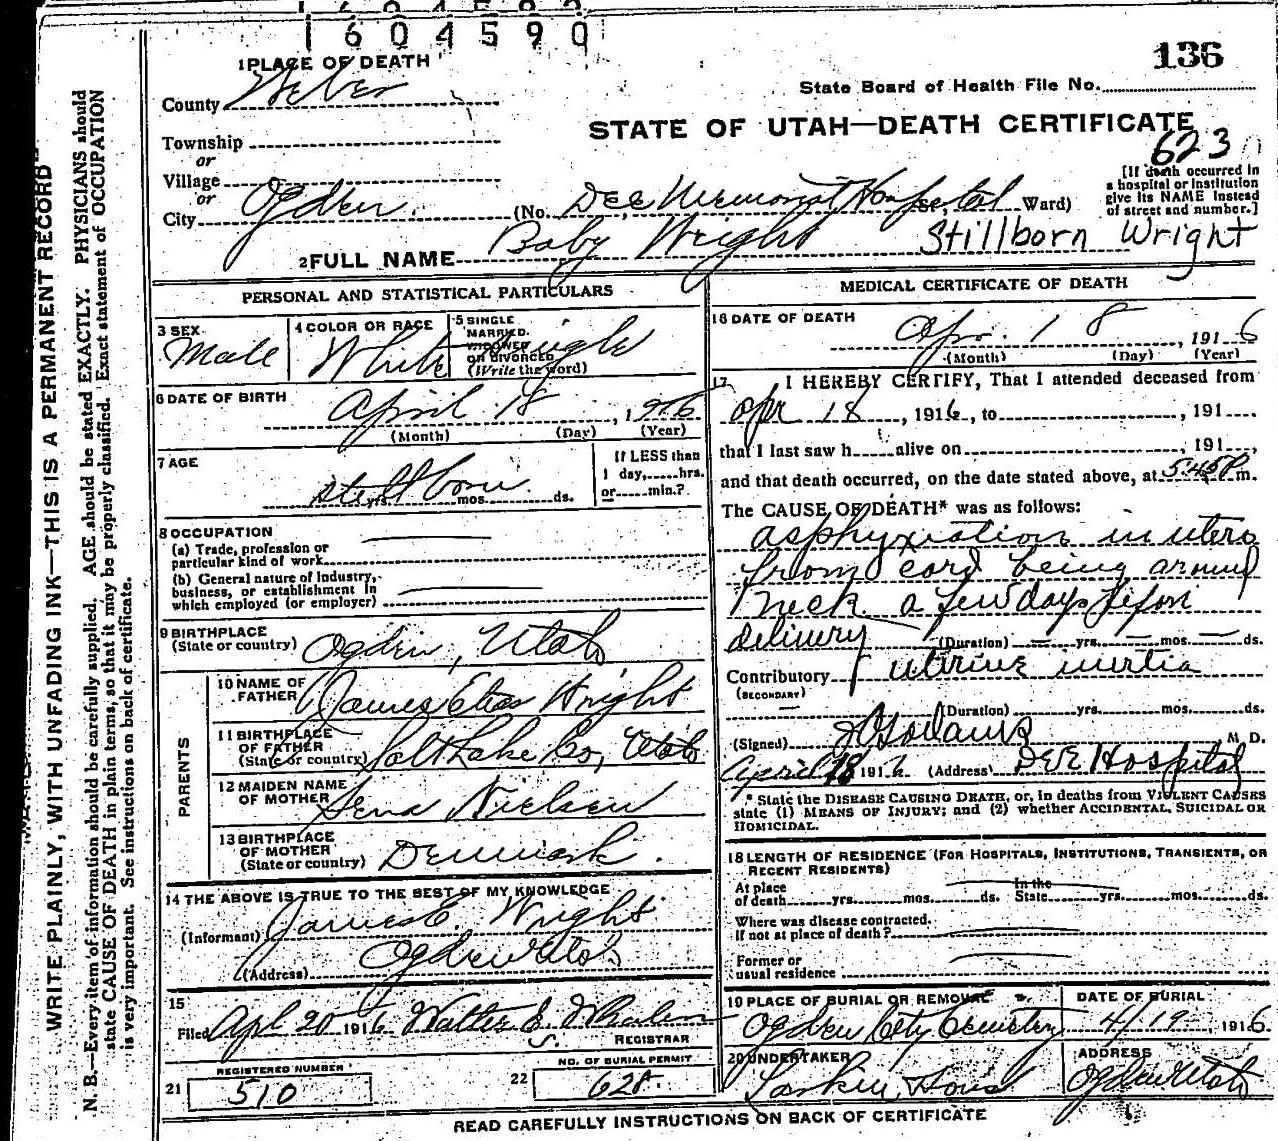 1604590
136
1 PLACE OF DEATH
State Board of Health File No.
County Weber
STATE OF UTAH—DEATH CERTIFICATE
Township
623
or
Village
or
City Ogden. (No. Dee Memorial Hospital St.; Ward)
[If death occurred in
a hospital or institution
give its NAME instead
of street and number.]
2 FULL NAME Baby Wright Stillborn Wright
PERSONAL AND STATISTICAL PARTICULARS
3 SEX Male
4 COLOR OR RACE White
5 SINGLE
MARRIED.
WIDOWED
OR DIVORCED
(Write the word) Single
6 DATE OF BIRTH April 18, 1916
(Month) (Day) (Year)
7 AGE Stillborn
yrs. mos. ds.
If LESS than
1 day, hrs.
or min.?
8 OCCUPATION
(a) Trade, profession or
particular kind of work
(b) General nature of Industry,
business, or establishment in
which employed (or employer)
9 BIRTHPLACE
(State or country) Ogden, Utah
PARENTS
10 NAME OF
FATHER James Elias Wright
11 BIRTHPLACE
OF FATHER
(State or country) Salt Lake Co, Utah
12 MAIDEN NAME
OF MOTHER Sena Nielsen
13 BIRTHPLACE
OF MOTHER
(State or country) Denmark.
14 THE ABOVE IS TRUE TO THE BEST OF MY KNOWLEDGE
(Informant) James E. Wright
(Address) Ogden Utah
15
Filed Apl 20 1916 Walter S. Whalen
REGISTRAR
REGISTERED NUMBER
21 510
NO. OF BURIAL PERMIT
22 628.
MEDICAL CERTIFICATE OF DEATH
16 DATE OF DEATH
Apr. 18, 1916
(Month) (Day) (Year)
17 I HEREBY CERTIFY, That I attended deceased from
Apr 18, 1916, to , 191
that I last saw h alive on , 191 ,
and that death occurred, on the date stated above, at 5:45 P. m.
The CAUSE OF DEATH* was as follows:
asphyxiation in utero
from cord being around
neck a few days before
delivery (Duration) yrs. mos. ds.
Contributory uterine inertia
(SECONDARY)
(Duration) yrs. mos. ds.
(Signed) M. D.
April 18 1916 (Address) Dee Hospital
* State the DISEASE CAUSING DEATH, or, in deaths from VIOLENT CAUSES
state (1) MEANS OF INJURY; and (2) whether ACCIDENTAL, SUICIDAL OR
HOMICIDAL.
18 LENGTH OF RESIDENCE (FOR HOSPITALS, INSTITUTIONS, TRANSIENTS, OR
RECENT RESIDENTS)
At place
of death yrs. mos. ds.
In the
State yrs. mos. ds.
Where was disease contracted.
If not at place of death?
Former or
usual residence
19 PLACE OF BURIAL OR REMOVAL
Ogden City Cemetery
DATE OF BURIAL
4/19 1916
20 UNDERTAKER
Larkin & Sons
ADDRESS
Ogden Utah
READ CAREFULLY INSTRUCTIONS ON BACK OF CERTIFICATE
WRITE PLAINLY, WITH UNFADING INK—THIS IS A PERMANENT RECORD
N. B.—Every item of information should be carefully supplied. AGE should be stated EXACTLY. PHYSICIANS should
state CAUSE OF DEATH in plain terms, so that it may be properly classified. Exact statement of OCCUPATION
is very important. See instructions on back of certificate.